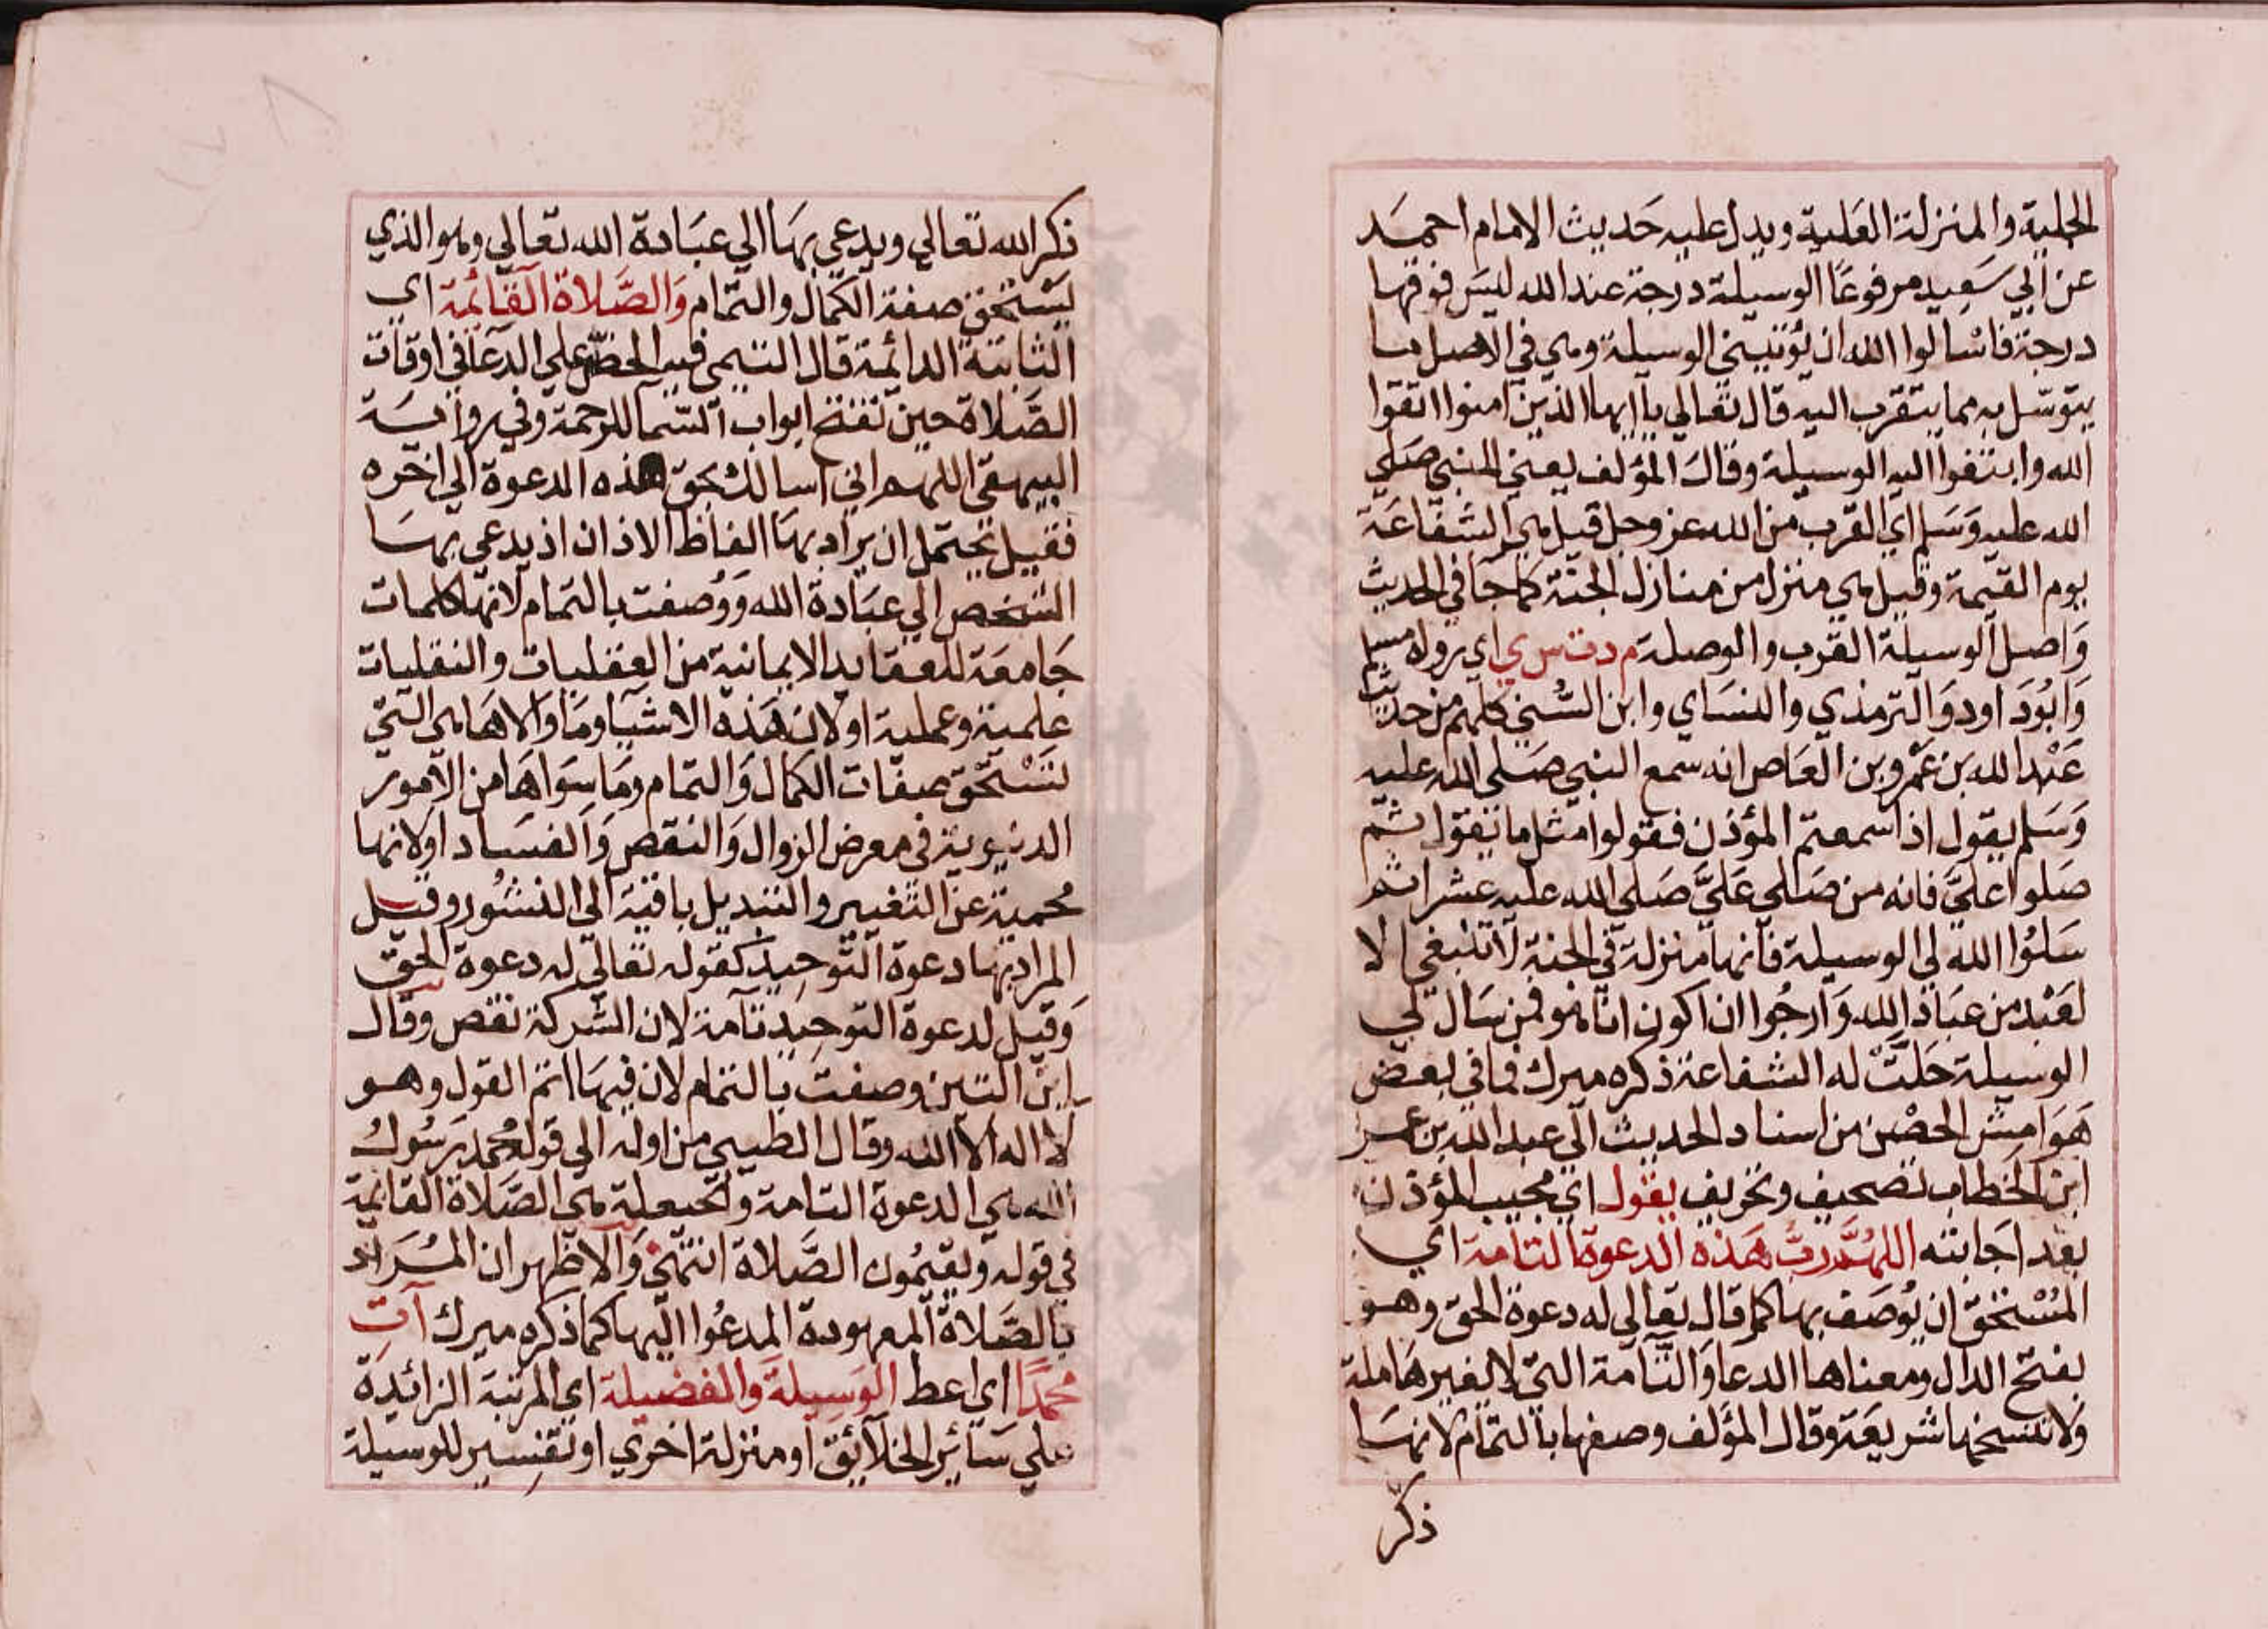 الجلية والمنزلة العلية ويدل عليه حديث الامام احمد
عن ابي سعيد مرفوعا الوسيلة درجة عند الله ليس فوقها
درجة فاسالوا الله ان يؤتيني الوسيلة وهي في الاصل ما
يتوسل به مما يتقرب اليه قال تعالي يآ ايها الذين امنوا اتقوا
الله وابتغوا اليه الوسيلة وقال المؤلف يعني النبي صلي
الله عليه وسلم اي القرب من الله عز وجل قيل هي الشفاعة
يوم القيمة وقيل هي منزل من منازل الجنة كما جآ في الحديث
واصل الوسيلة القرب والوصلة م د ت س ي اي رواه مسلم
وابود اود والترمذي والنساي وابن السني كلهم من حديث
عند الله بن عمرو بن العاص انه سمع النبي صلي الله عليه
وسلم يقول اذا سمعتم المؤذن فقولوا مثل ما تقول ثم
صلوا علي فانه من صلي علي صلي الله عليه عشرا ثم
سلوا الله لي الوسيلة فانها منزلة في الجنة لا تنبغي الا
لعبد من عباد الله وارجوا ان اكون انا هو فمن سال لي
الوسيلة حلت له الشفاعة ذكره ميرك فما في بعض
هوامش الحصن من اسناد الحديث الي عبد الله بن عمر
ابن الخطاب تصحيف وتحريف يقول اي مجيب المؤذن
بعد اجابته اللهم رب هذه الدعوة التامة اي
المستحق ان يوصف بها كما قال تعالي له دعوة الحق وهو
بفتح الدال ومعناها الدعا والتآمة التي لا لغيرها ملة
ولا تنسخها شريعة وقال المؤلف وصفها بالتمام لانها
ذكر
ذكر الله تعالي ويدعي بها الي عبادة الله تعالي وهو الذي
يستحق صفة الكمال والتمام والصلاة القآئمة اي
الثابتة الدائمة قال التيمي فيه الحض علي الدعآ في اوقات
الصلاة حين تفتح ابواب السمآ للرحمة وفي رواية
البيهقي اللهم اني اسالك بحق هذه الدعوة الي اخره
فقيل يحتمل ان يراد بها الفاظ الاذان اذ يدعي بها
الشخص الي عبادة الله ووصفت بالتمام لانها كلمات
جامعة للعقايد الايمانية من العقليات والنقليات
علمية وعملية او لان هذه الاشيآ وما والاها هي التي
تستحق صفات الكمال والتمام وما سواها من الامور
الدنيوية في معرض الزوال والنقص والفساد او لانها
محمية عن التغيير والتبديل باقية الي النشور وقيل
المراد بها دعوة التوحيد كقوله تعالي له دعوة الحق
وقيل لدعوة التوحيد تآمة لان الشركة نقص وقال
ابن التين وصفت بالتمام لان فيها اتم القول وهو
لا اله الا الله وقال الطيبي من اوله الي قوله محمد رسول
الله هي الدعوة التامة والحيعلة هي الصلاة القائمة
في قوله ويقيمون الصلاة انتهي والاظهر ان المراد
بالصلاة المعهودة المدعوا اليها كما ذكره ميرك آت
محمدا اي اعط الوسيلة والفضيلة اي المرتبة الزائدة
علي سآئر الخلآئق او منزلة اخري او تفسير للوسيلة